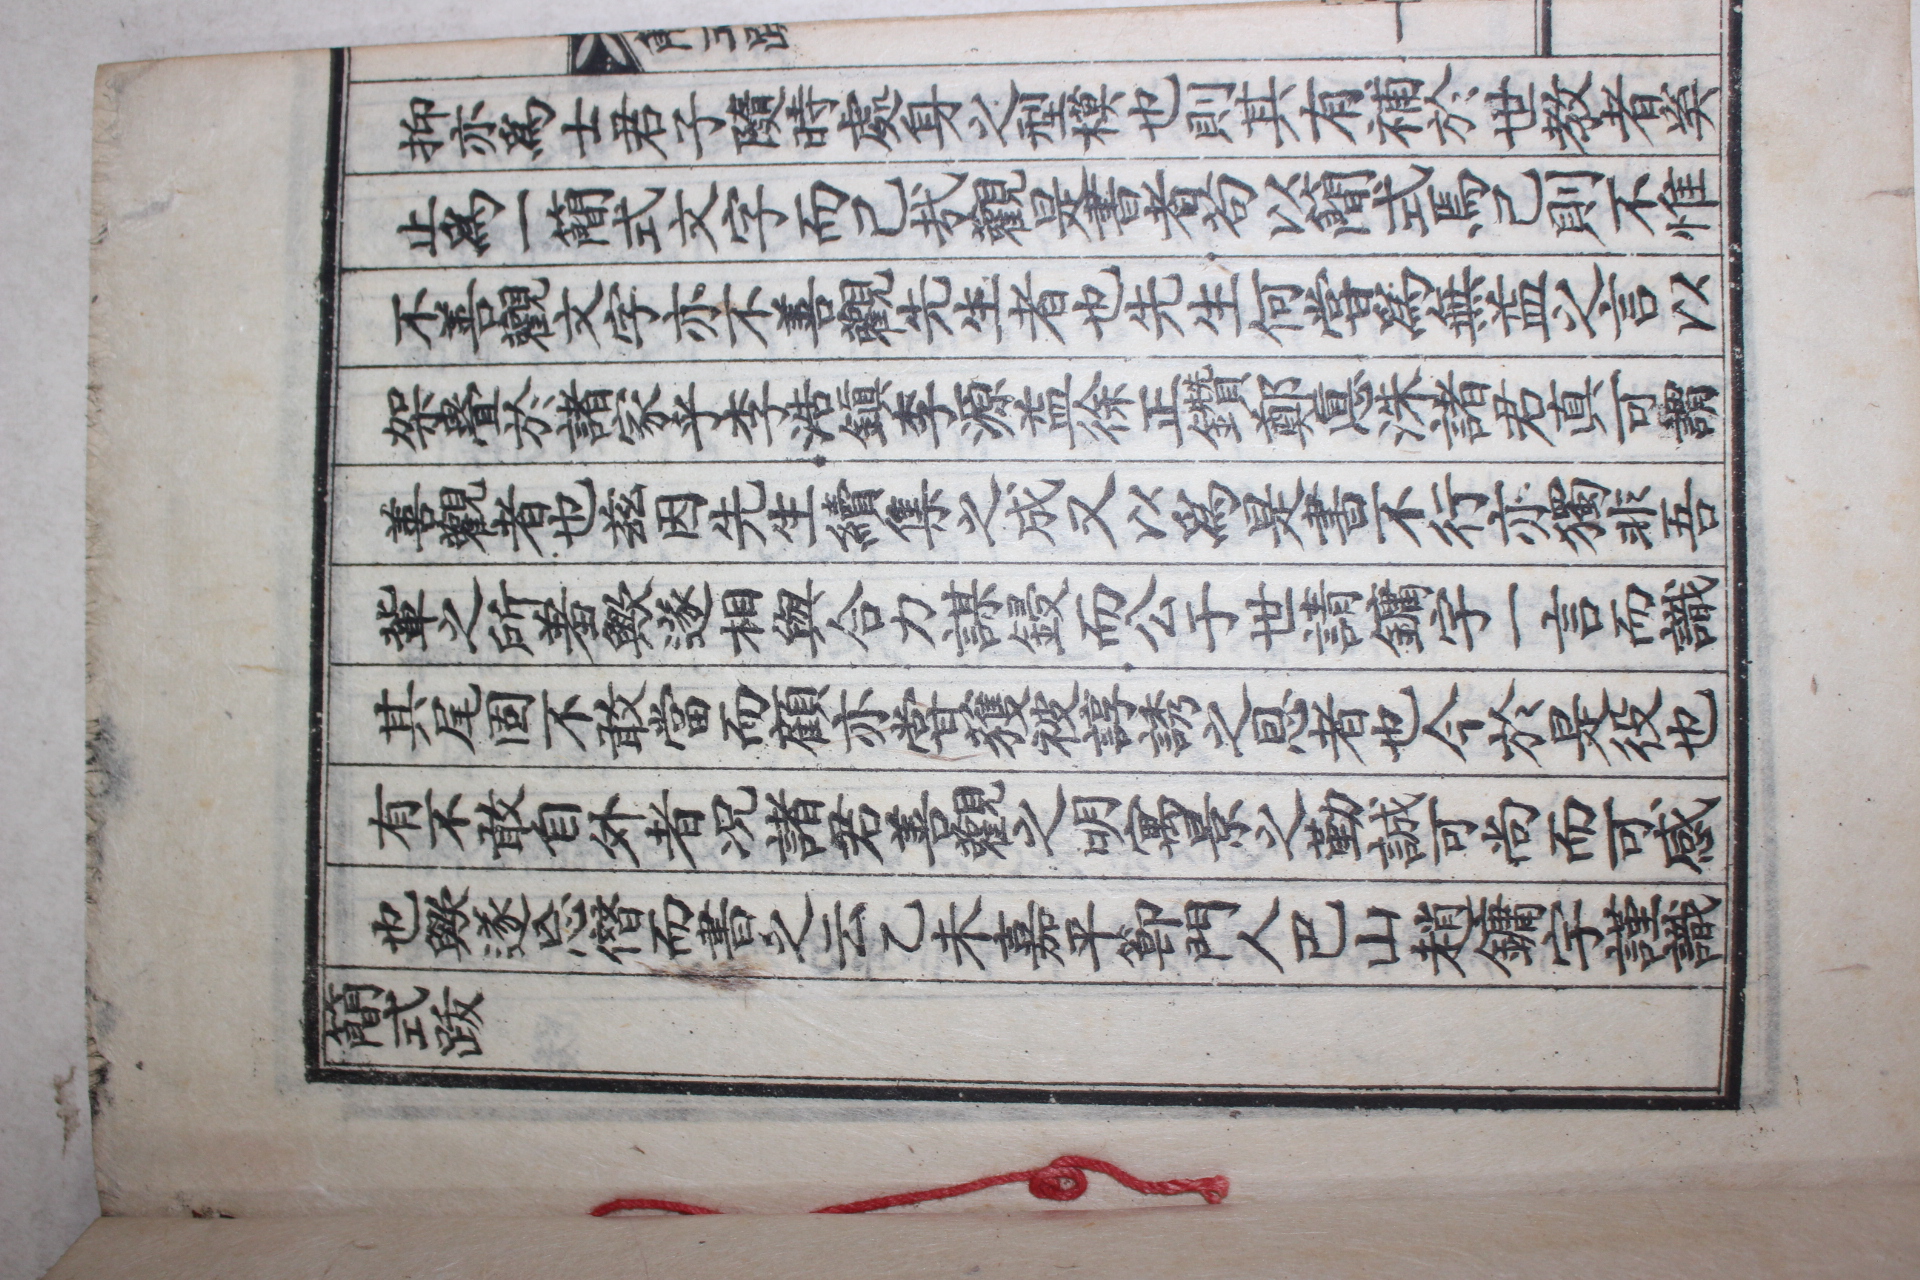 簡式跋 一
抑亦爲士君子隨時處身之型模也則其有補於世敎者矣
止爲一簡式文字而已哉觀是書者苟以簡式焉已則不惟
不善觀文字亦不善觀先生者也先生何嘗爲無益之言以
架疊於諸家乎李浩鎭李源益徐正鑽鄭惪洙諸君眞可謂
善觀者也玆因先生續集之成又以爲是書不行亦獨非吾
輩之所羞歟遂相與合力謀鋟而公于世請鏞宇一言而識
其尾固不敢當而顧亦嘗獲被諄誘之恩者也今於是役也
有不敢自外者况諸君善觀之明寓景之勤誠可尙而可感
也歟遂忘僭而書之云乙未嘉平節門人巴山趙鏞宇謹識
簡式跋